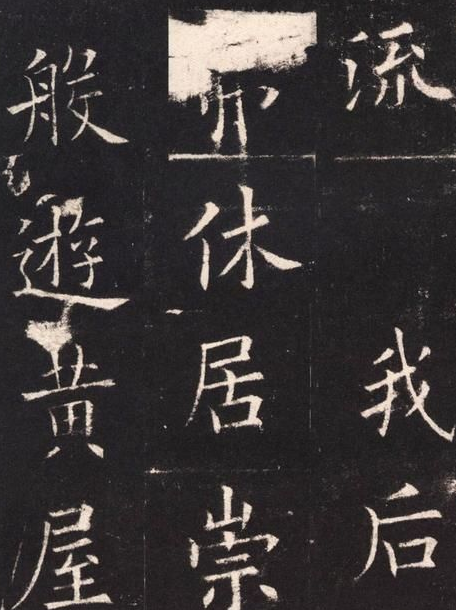 流我后
弗休居崇
般遊黃屋